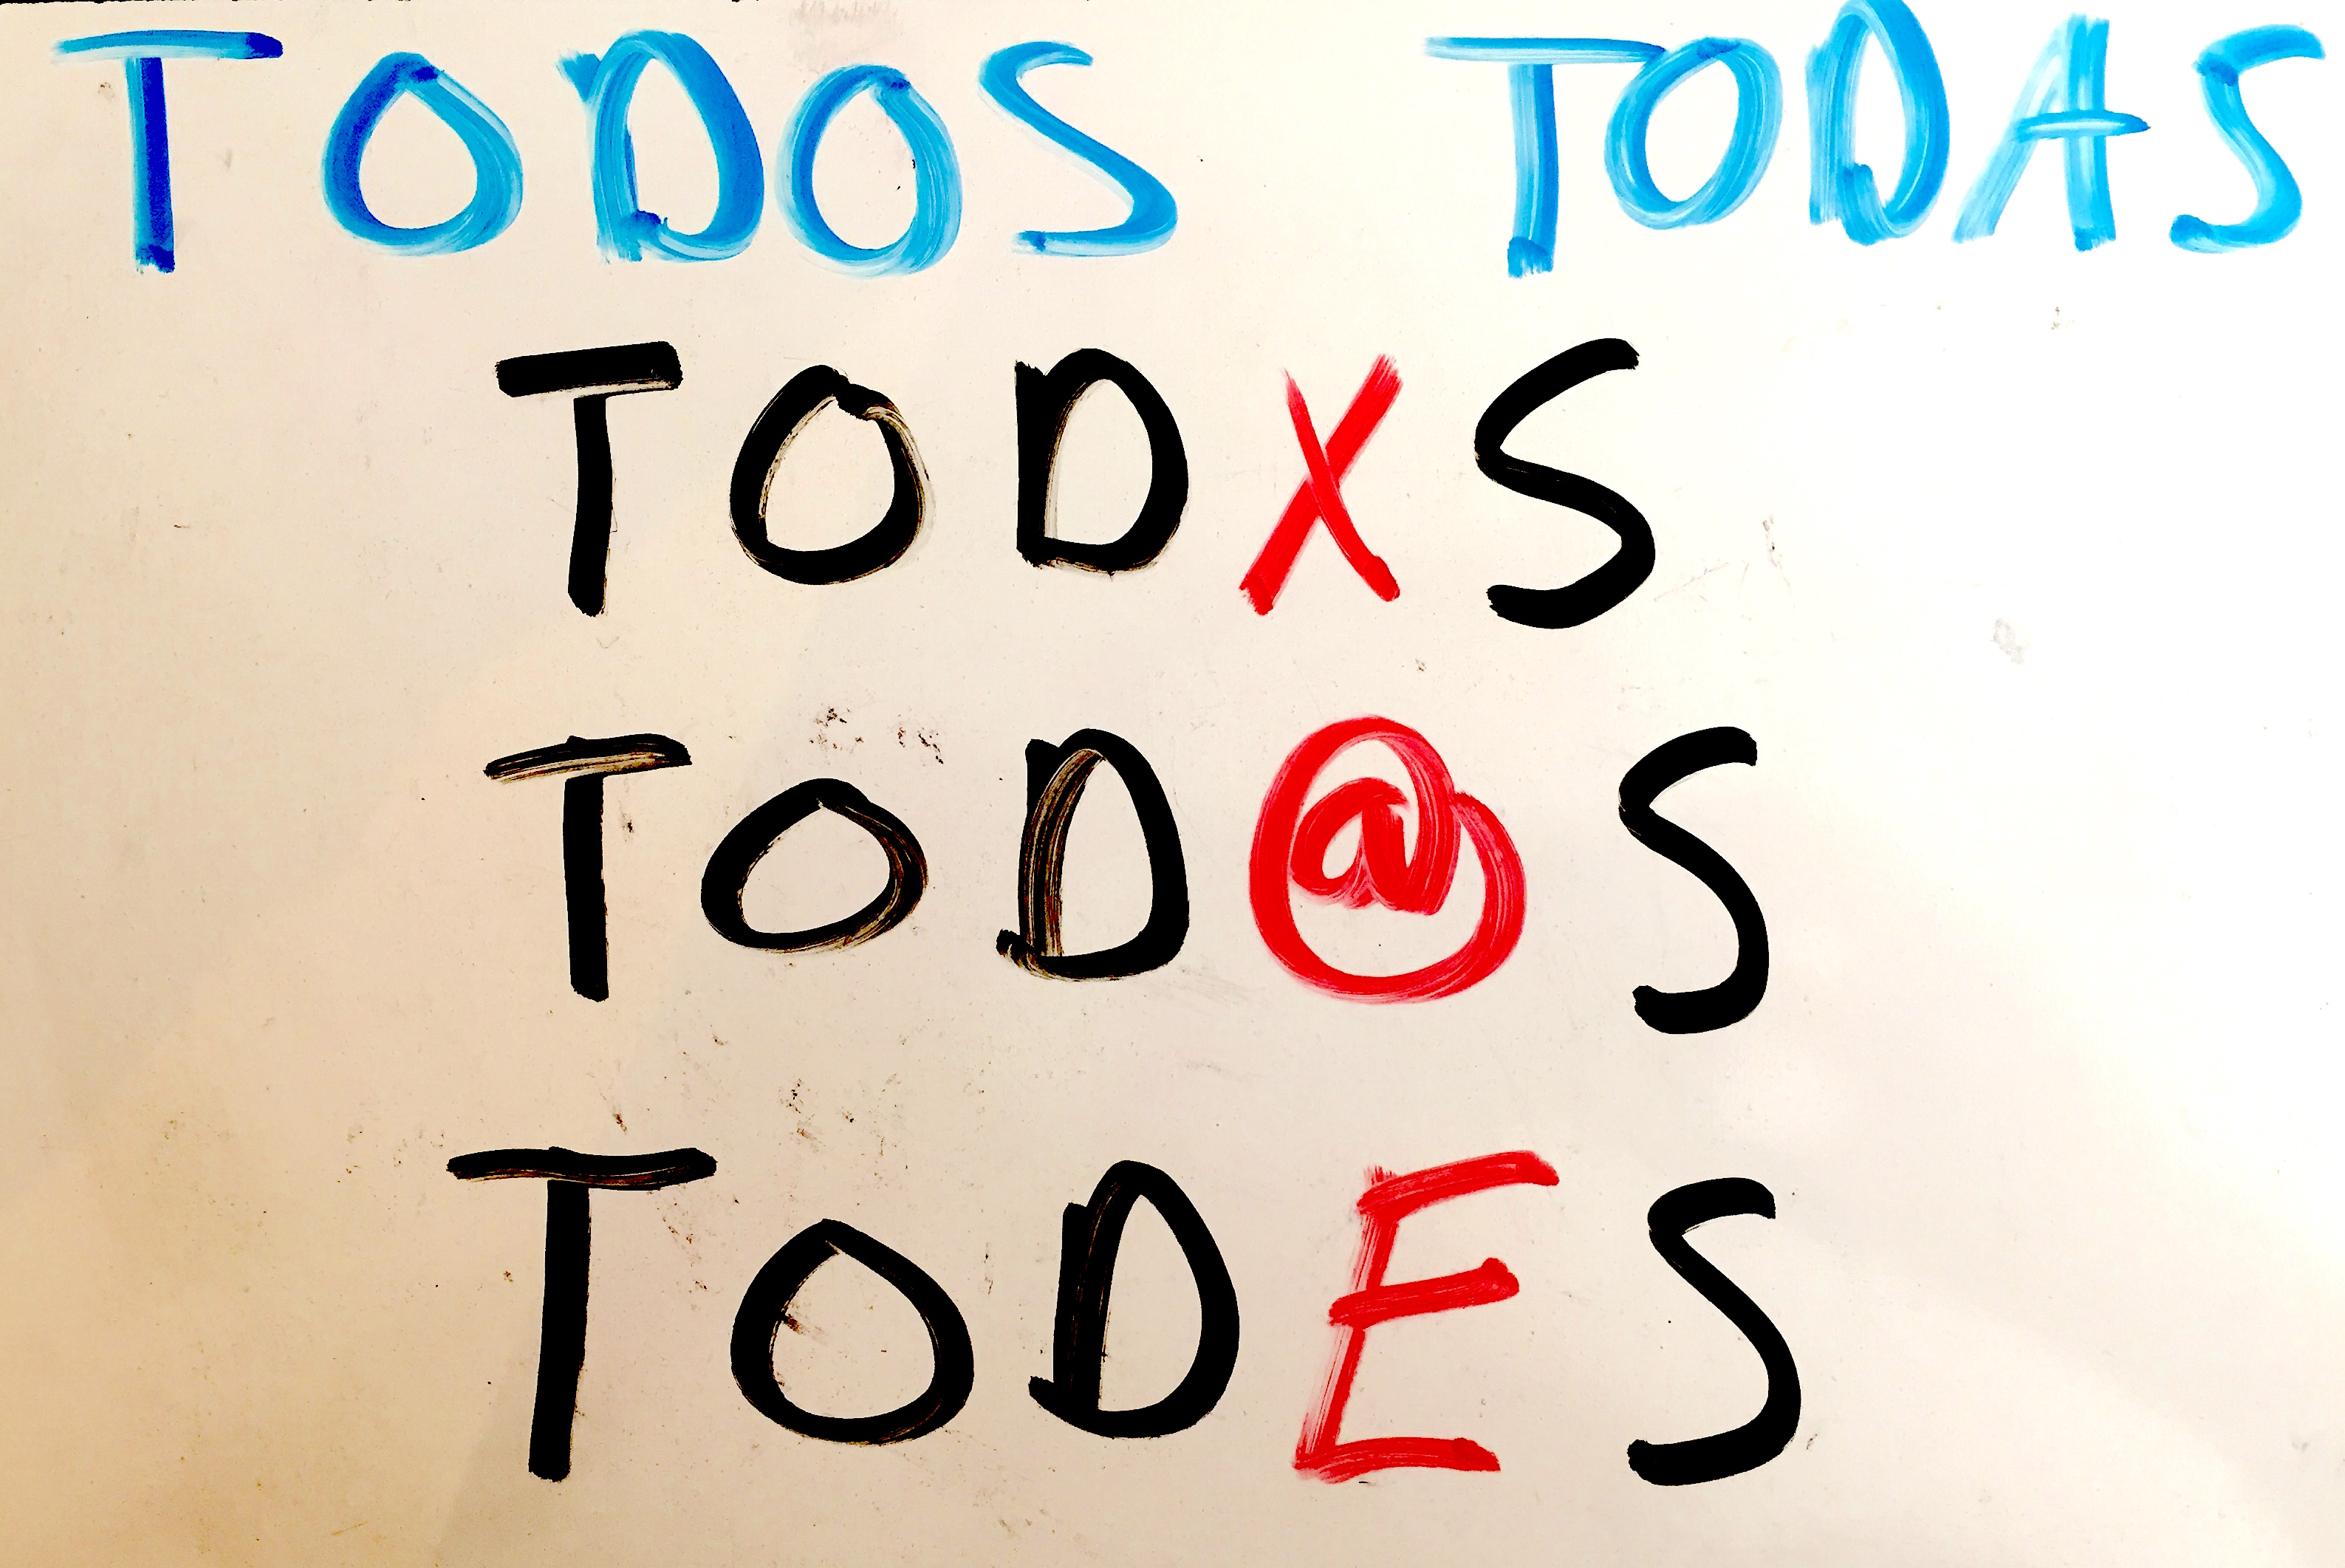 TODOS TODAS
TODXS
TOD@S
TODES